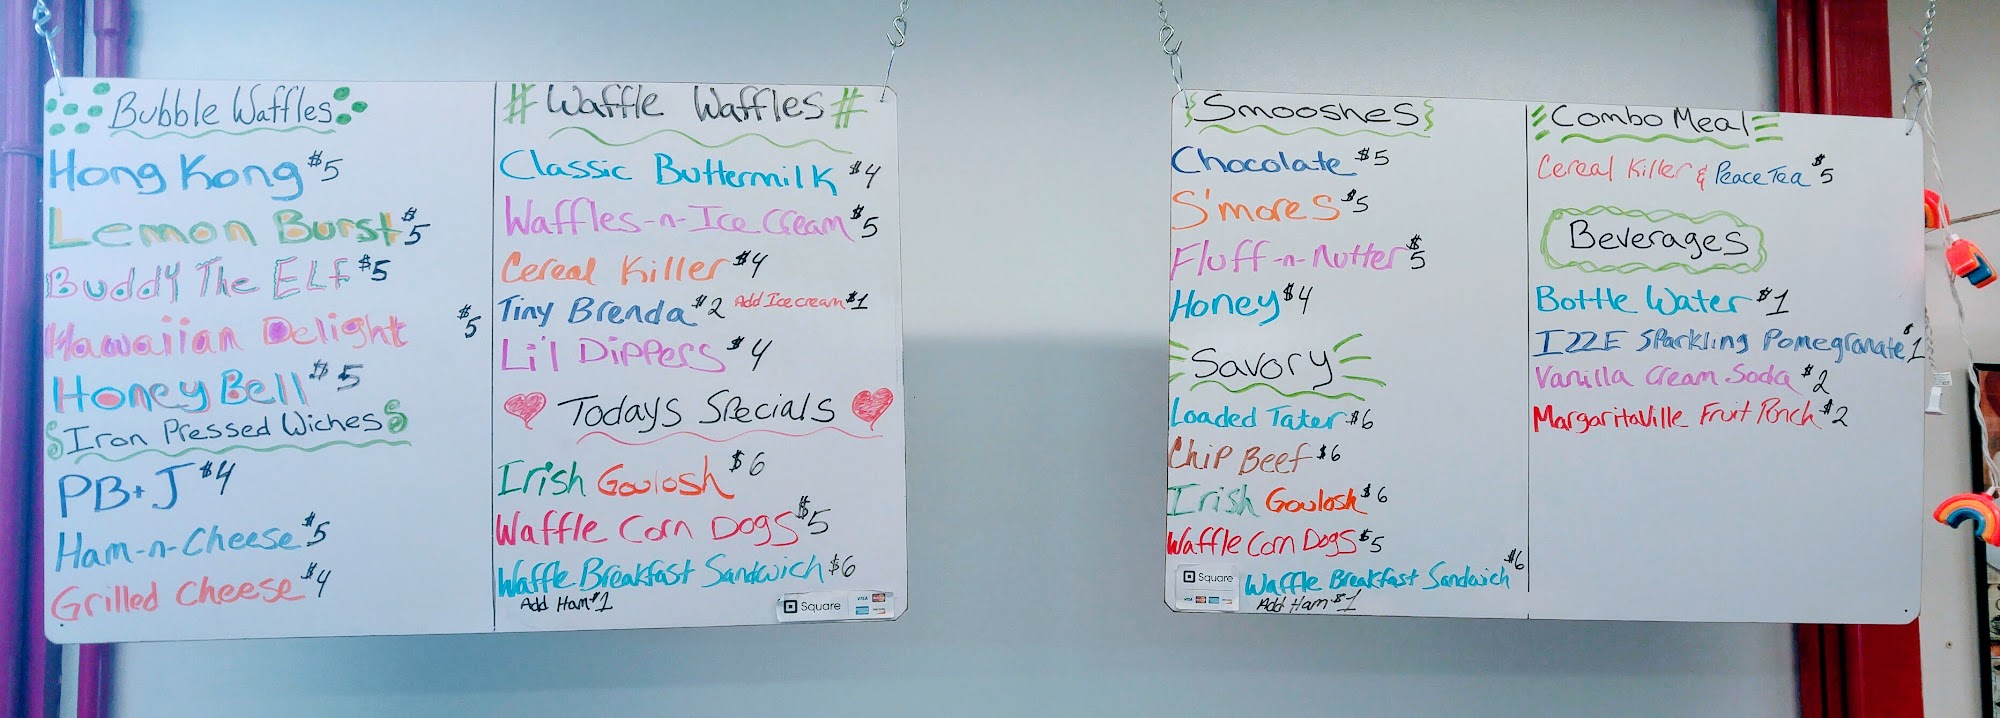 Bubble Waffles
Hong Kong $5
Lemon Burst $5
Buddy The Elf $5
Hawaiian Delight $5
Honey Bell $5
Iron Pressed Wiches
PB+J $4
Ham-n-Cheese $5
Grilled Cheese $4
# Waffle Waffles #
Classic Buttermilk $4
Waffles-n-Ice Cream $5
Cereal Killer $4
Tiny Brenda $2 Add Ice cream $1
Li'l Dippers $4
Todays Specials
Irish Goulosh $6
Waffle Corn Dogs $5
Waffle Breakfast Sandwich $6
Add Ham $1
Square VISA
Smooshes
Chocolate $5
S'mores $5
Fluff-n-Nutter $5
Honey $4
Savory
Loaded Tater $6
Chip Beef $6
Irish Goulosh $6
Waffle Corn Dogs $5
Waffle Breakfast Sandwich $6
Add Ham $1
Square VISA
Combo Meal
Cereal Killer & Peace Tea $5
Beverages
Bottle Water $1
IZZE Sparkling Pomegranate $1
Vanilla Cream Soda $2
Margaritaville Fruit Punch $2